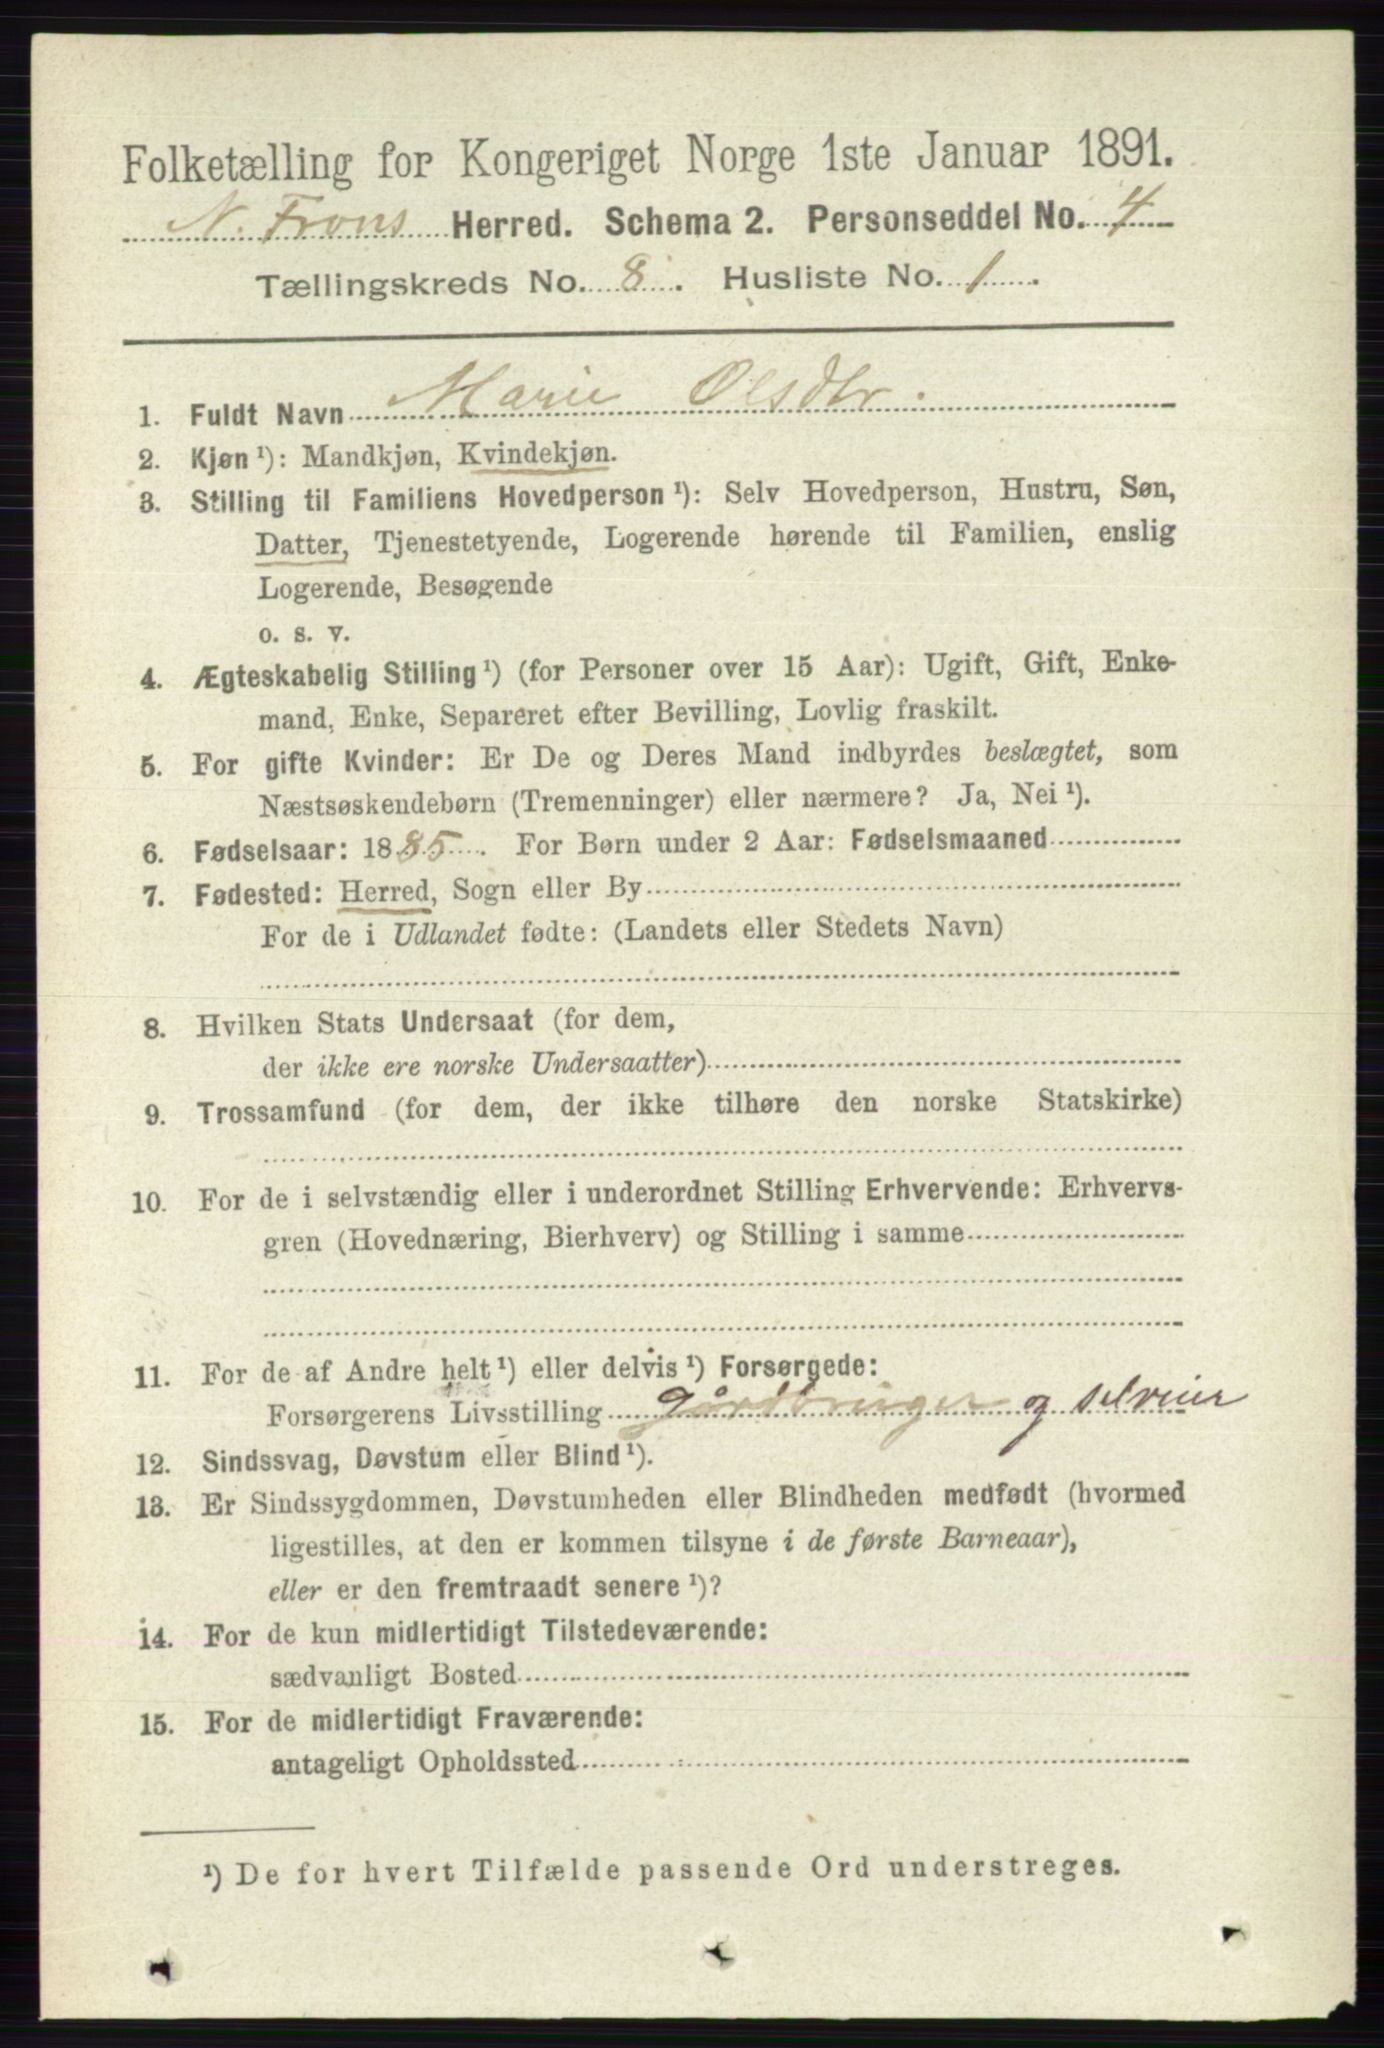 Folketælling for Kongeriget Norge 1ste Januar 1891.
N. Frons Herred. Schema 2. Personseddel No. 4
Tællingskreds No. 8. Husliste No. 1.
1. Fuldt Navn Marie Olsdtr.
2. Kjøn ¹): Mandkjøn, Kvindekjøn.
3. Stilling til Familiens Hovedperson ¹): Selv Hovedperson, Hustru, Søn,
Datter, Tjenestetyende, Logerende hørende til Familien, enslig
Logerende, Besøgende
o. s. v.
4. Ægteskabelig Stilling ¹) (for Personer over 15 Aar): Ugift, Gift, Enke-
mand, Enke, Separeret efter Bevilling, Lovlig fraskilt.
5. For gifte Kvinder: Er De og Deres Mand indbyrdes beslægtet, som
Næstsøskendebørn (Tremenninger) eller nærmere? Ja, Nei ¹).
6. Fødselsaar: 1885. For Børn under 2 Aar: Fødselsmaaned
7. Fødested: Herred, Sogn eller By
For de i Udlandet fødte: (Landets eller Stedets Navn)
8. Hvilken Stats Undersaat (for dem,
der ikke ere norske Undersaatter)
9. Trossamfund (for dem, der ikke tilhøre den norske Statskirke)
10. For de i selvstændig eller i underordnet Stilling Erhvervende: Erhvervs-
gren (Hovednæring, Bierhverv) og Stilling i samme
11. For de af Andre helt ¹) eller delvis ¹) Forsørgede:
Forsørgerens Livsstilling gårdbruger og selveier
12. Sindssvag, Døvstum eller Blind ¹).
13. Er Sindssygdommen, Døvstumheden eller Blindheden medfødt (hvormed
ligestilles, at den er kommen tilsyne i de første Barneaar),
eller er den fremtraadt senere ¹)?
14. For de kun midlertidigt Tilstedeværende:
sædvanligt Bosted
15. For de midlertidigt Fraværende:
antageligt Opholdssted
¹) De for hvert Tilfælde passende Ord understreges.